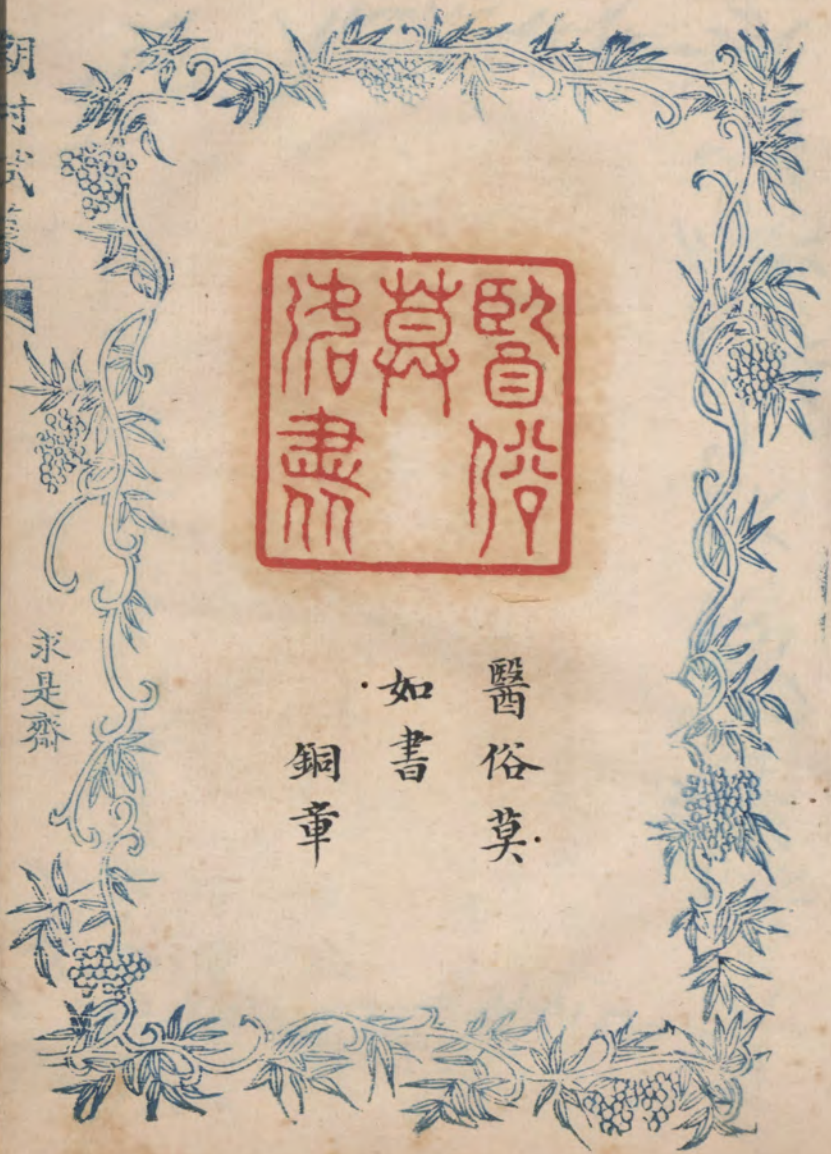 醫俗
莫
如書
醫俗莫
如書
銅章
求是齋